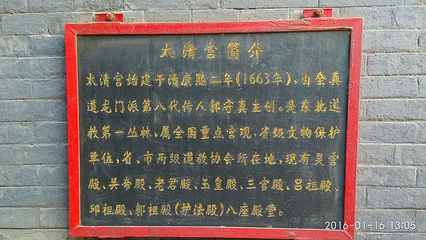 太清宫简介
太清宫始建于清康熙二年(1663年),由全真
道龙门派第八代传人郭守真主创。是东北道
教第一丛林,属全国重点宫观,省级文物保护
单位,省、市两级道教协会所在地,现有灵官
殿、关帝殿、老君殿、玉皇殿、三官殿、吕祖殿、
邱祖殿、郭祖殿(护法殿)八座殿堂。
2016-01-16 13:05